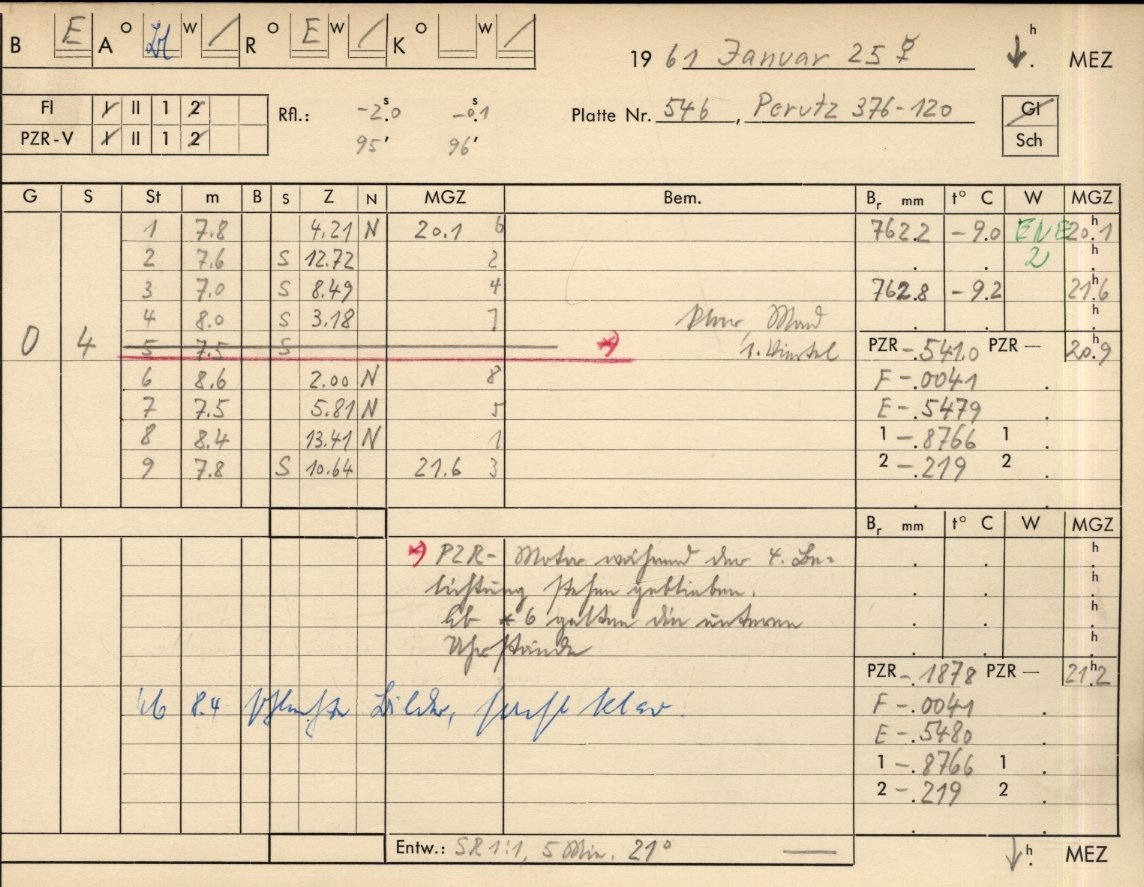 B E A o W / R o E W / K o W /
19 61 Januar 25 ☿ h MEZ
Fl I II 1 2 Rfl.: -2ˢ.0 -0ˢ.1 Platte Nr. 546, Perutz 376-120 Gl
PZR-V I II 1 2 95' 96' Sch
G S St m B S Z N MGZ Bem. Br mm t° C W MGZ
1 7.8 4.21 N 20.1 6 762.2 -9.0 ENE 20.1 h
2 7.6 S 12.72 2 2 h
3 7.0 S 8.49 4 762.8 -9.2 21.6 h
4 8.0 S 3.18 7 klar, Mond h
0 4 5 7.5 S *) 1. Viertel PZR -.5410 PZR — 20.9 h
6 8.6 2.00 N 8 F -.0041
7 7.5 5.81 N 5 E -.5479
8 8.4 13.41 N 1 1 -.8766 1
9 7.8 S 10.64 21.6 3 2 -.219 2
Br mm t° C W MGZ
*) PZR-Motor während der 4. Be- h
lichtung stehen geblieben. h
Ab * 6 gelten die unteren h
Uhrstände h
PZR -.1878 PZR — 21.2 h
ab 8.4 Bilder, sonst klar. F -.0041
E -.5480
1 -.8766 1
2 -.219 2
Entw.: SR 1:1, 5 Min. 21° —
h MEZ